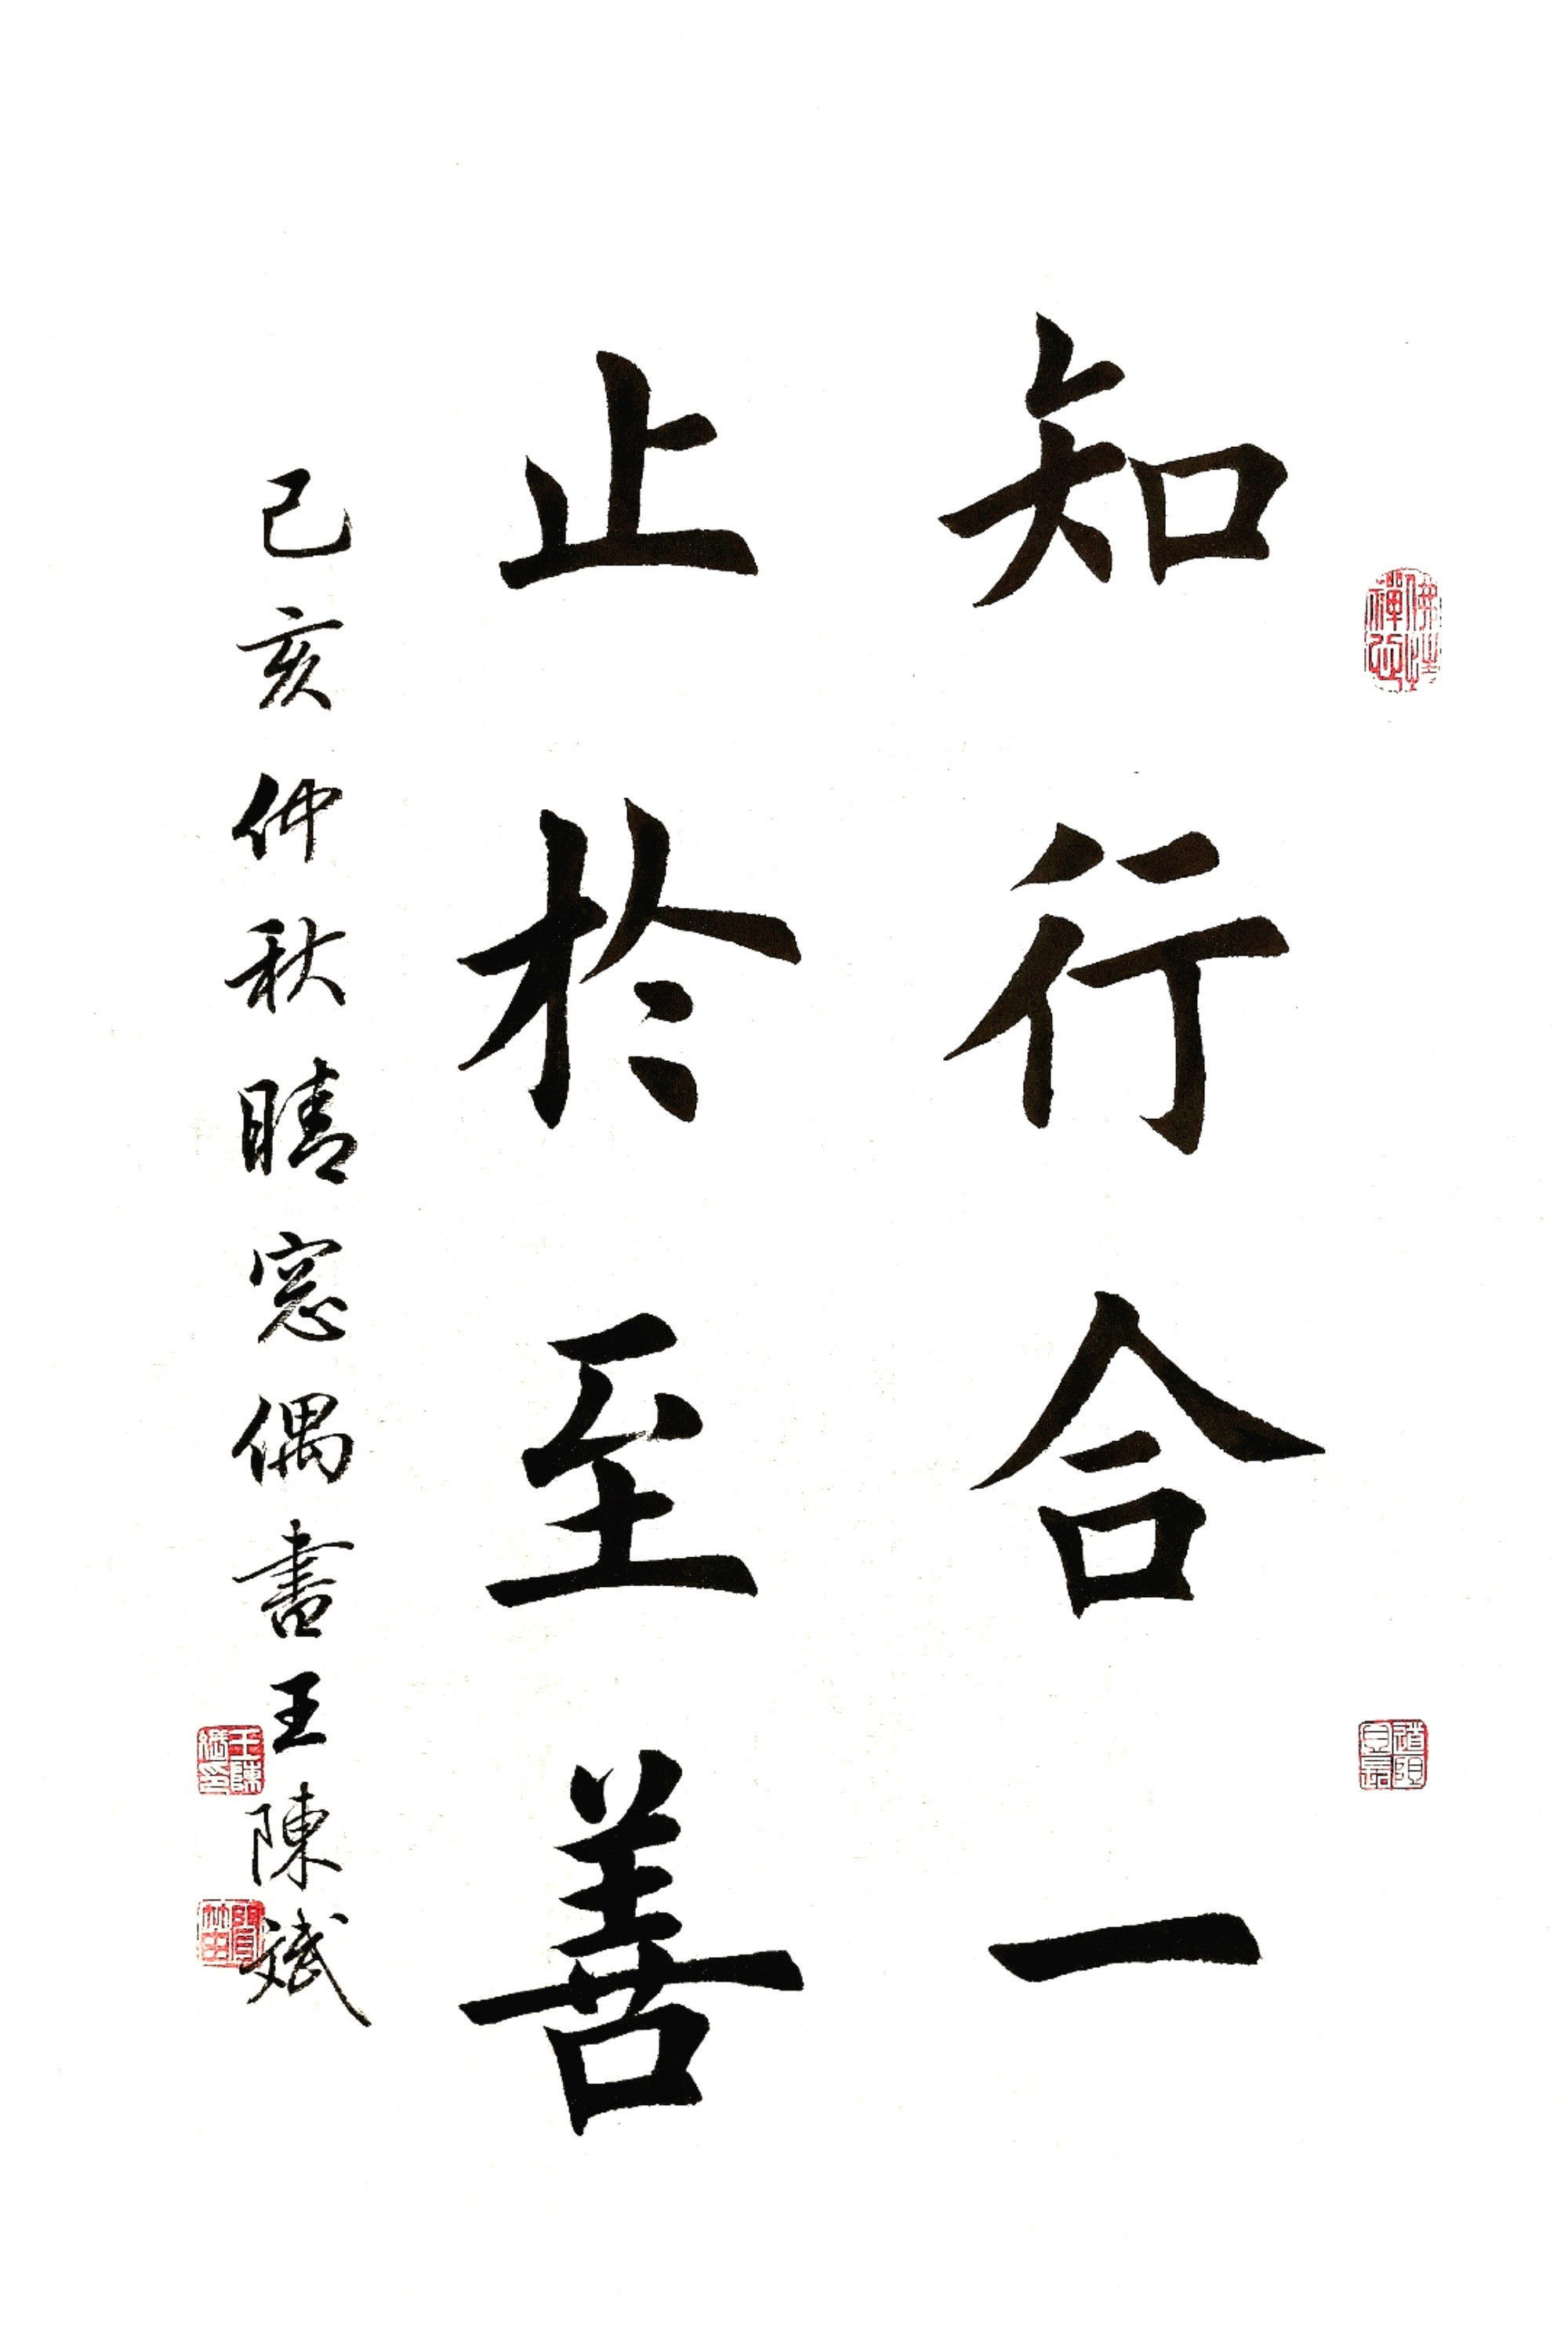 知行合一
止於至善
己亥仲秋晴窓偶書王陳斌